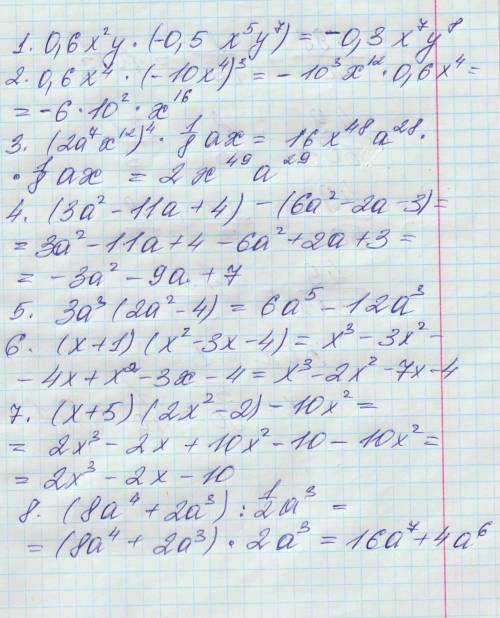 1. 0,6x²y · (-0,5 x⁵y⁷) = -0,3x⁷y⁸
2. 0,6x⁴ · (-10x⁴)³ = -10³x¹² · 0,6x⁴ =
= -6 · 10² · x¹⁶
3. (2a⁷x¹²)⁴ · 1/8 ax = 16x⁴⁸a²⁸ ·
· 1/8 ax = 2x⁴⁹a²⁹
4. (3a² - 11a + 4) - (6a² - 2a - 3) =
= 3a² - 11a + 4 - 6a² + 2a + 3 =
= -3a² - 9a + 7
5. 3a³(2a² - 4) = 6a⁵ - 12a³
6. (x+1)(x² - 3x - 4) = x³ - 3x² -
- 4x + x² - 3x - 4 = x³ - 2x² - 7x - 4
7. (x+5)(2x² - 2) - 10x² =
= 2x³ - 2x + 10x² - 10 - 10x² =
= 2x³ - 2x - 10
8. (8a⁴ + 2a³) : 1/2 a³ =
= (8a⁴ + 2a³) · 2a³ = 16a⁷ + 4a⁶